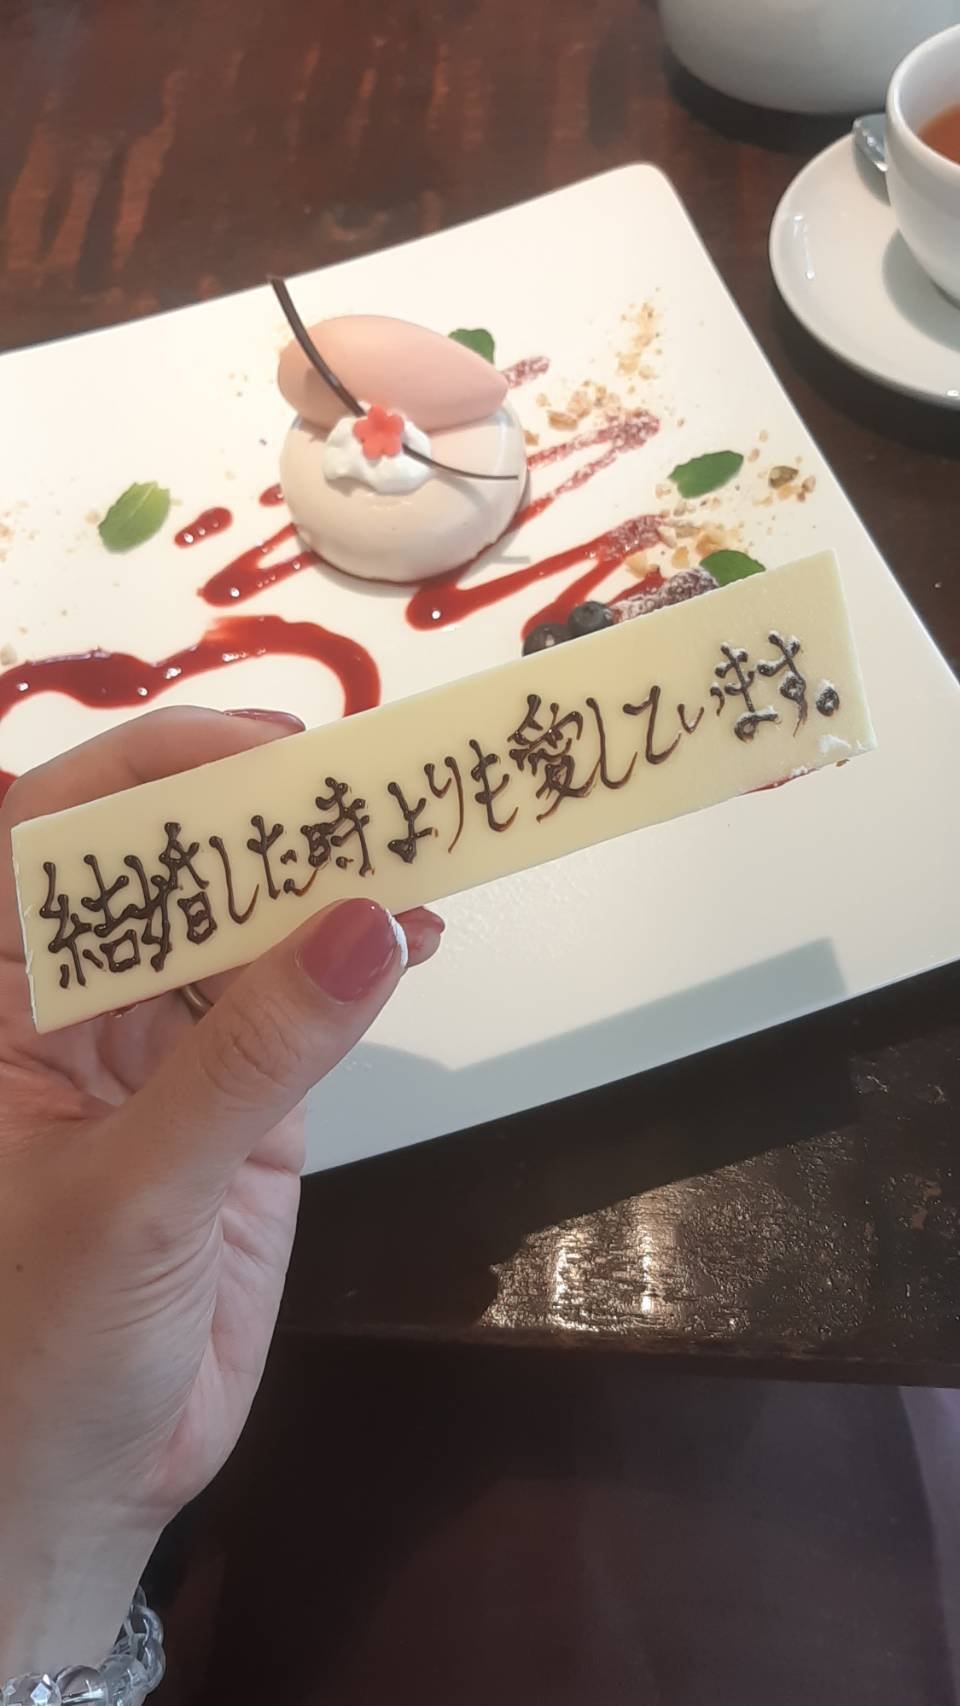 結婚した時よりも愛しています。